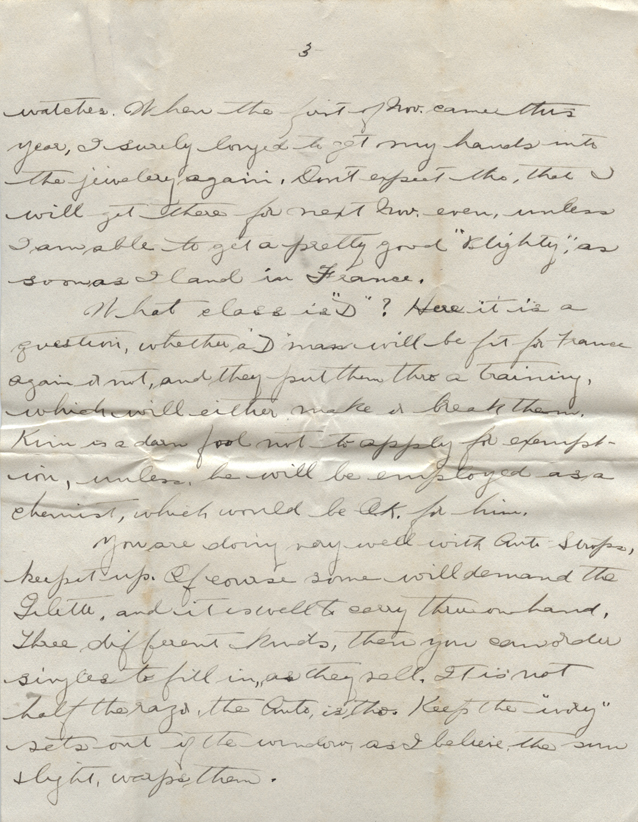 3
watches. When the first of Nov. came this
year, I surely longed to get my hands into
the jewelery again. Don't expect tho, that I
will get there for next Nov. even, unless
I am able to get a pretty good "Blighty", as
soon as I land in France.
What class is "D"? Here it is a
question, whether a "D" man will be fit for France
again or not, and they put them thro a training,
which will either make or break them.
Kim is a darn fool not to apply for exempt-
ion, unless, he will be employed as a
chemist, which would be O.K. for him.
You are doing very well with Auto Strops,
keep it up. Of course some will demand the
Gilette, and it is well to carry them on hand,
Three different kinds, then you can order
singles to fill in, as they sell. It is not
half the razor, the Auto, is, tho. Keep the "ivory"
sets out of the window, as I believe, the sun
slight, warps, them.